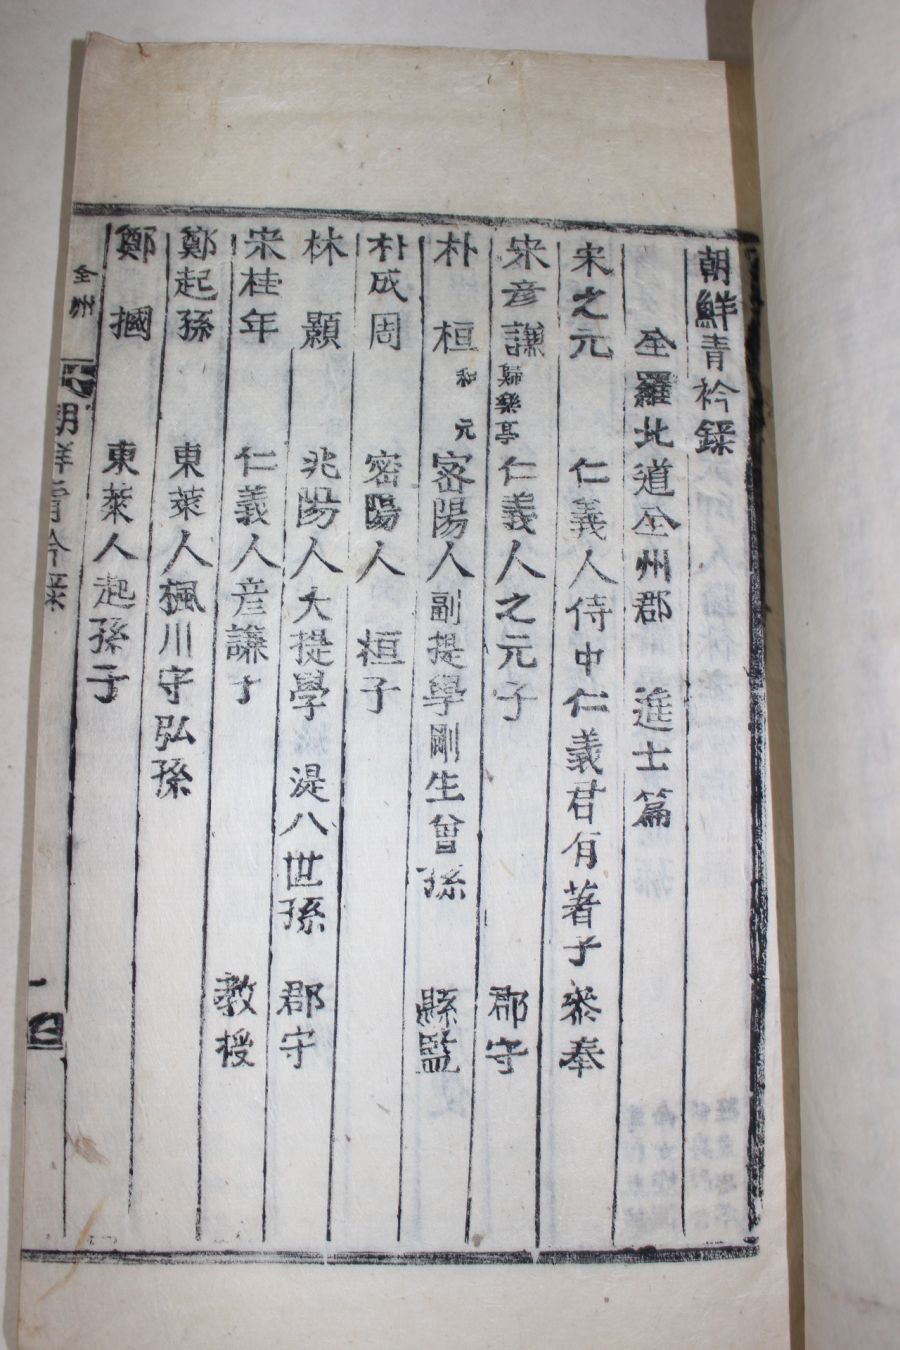 朝鮮青衿錄
全羅北道全州郡 進士篇
宋之元 仁義人侍中仁義君有著子 叅奉
宋彦謙 歸樂亭 仁義人之元子 郡守
朴桓 和元 密陽人副提學剛生曾孫 縣監
朴成周 密陽人桓子
林顥 兆陽人大提學湜八世孫 郡守
宋桂年 仁義人彦謙子 教授
鄭起孫 東萊人楓川守弘孫
鄭摑 東萊人起孫子
全州 朝鮮青衿錄 一